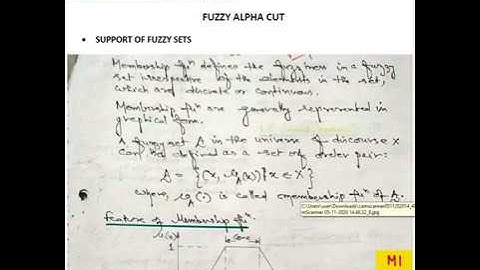 FUZZY ALPHA CUT
• SUPPORT OF FUZZY SETS
Membership fuⁿ defines the fuzziness in a fuzzy
set irrespective of the elements in the set,
which are discrete or continuous.
Membership fuⁿ are generally represented in
graphical form.
A fuzzy set A in the universe of discourse X
can be defined as a set of order pair:
A = {(x, μA(x)) | x ∈ X}
where, μA(·) is called membership fuⁿ of A.
Feature of Membership fuⁿ.
μ(x)
1
core
M1